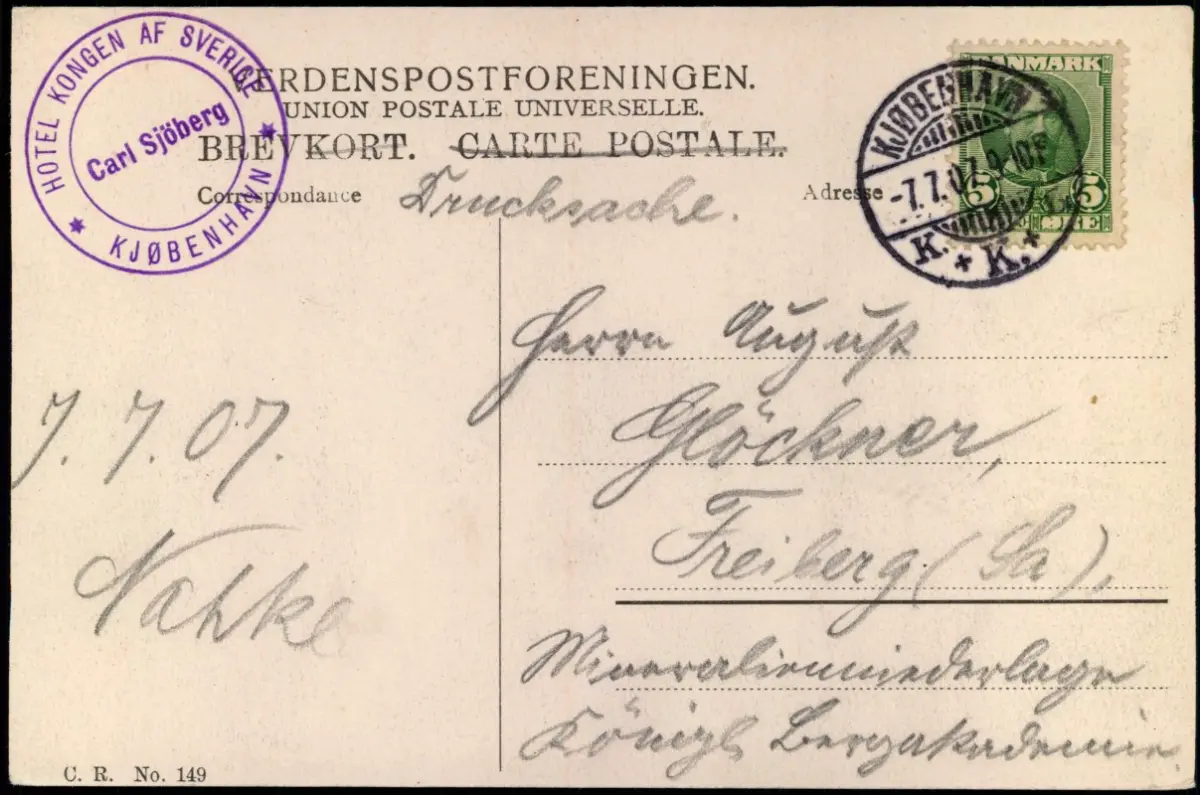 HOTEL KONGEN AF SVERIGE
Carl Sjöberg
KJØBENHAVN
VERDENSPOSTFORENINGEN.
UNION POSTALE UNIVERSELLE.
BREVKORT. CARTE POSTALE.
Correspondance
Drucksache.
Adresse
DANMARK
5 5
KJØBENHAVN
-7.7.07. 9-10F
K. K.
Herrn August
Glöckner,
Freiberg (Sa),
Mineralienniederlage
Königl. Bergakademie
7.7.07.
C. R. No. 149